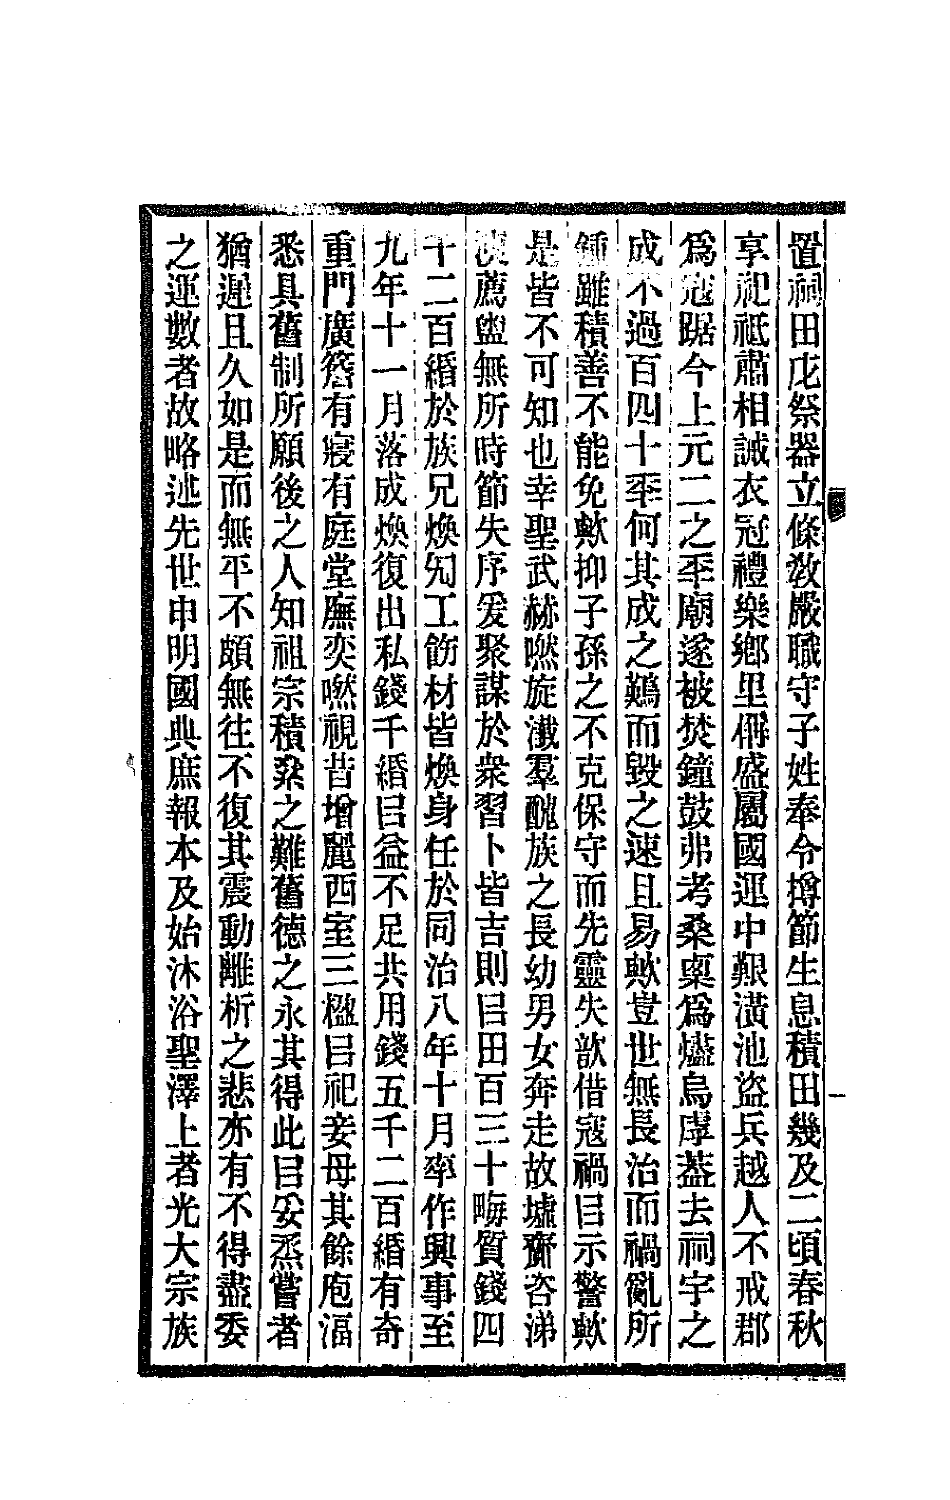 置祠田庀祭器立條敎嚴職守子姓奉令撙節生息積田幾及二頃春秋
享祀祗肅相誡衣冠禮樂鄉里偁盛屬國運中艱潢池盜兵越人不戒郡
爲寇踞今上元二之秊廟遂被焚鐘鼓弗考桑稟爲燼烏虖葢去祠宇之
成不過百四十秊何其成之鷬而毀之速且易歟豈世無長治而禍亂所
鍾雖積善不能免歟抑子孫之不克保守而先靈失歆借寇禍㠯示警歟
是皆不可知也幸聖武赫嘫旋瀸羣醜族之長幼男女奔走故墟齎咨涕
洟薦盥無所時節失序爰聚謀於衆習卜皆吉則㠯田百三十畮質錢四
千二百緡於族兄煥勼工飭材皆煥身任於同治八年十月率作興事至
九年十一月落成煥復出私錢千緡㠯益不足共用錢五千二百緡有奇
重門廣簷有寢有庭堂廡奕嘫視昔增麗西室三楹㠯祀妾母其餘庖湢
悉具舊制所願後之人知祖宗積絫之難舊德之永其得此㠯妥烝嘗者
猶遲且久如是而無平不頗無往不復其震動離析之悲亦有不得盡委
之運數者故略述先世申明國典庶報本及始沐浴聖澤上者光大宗族